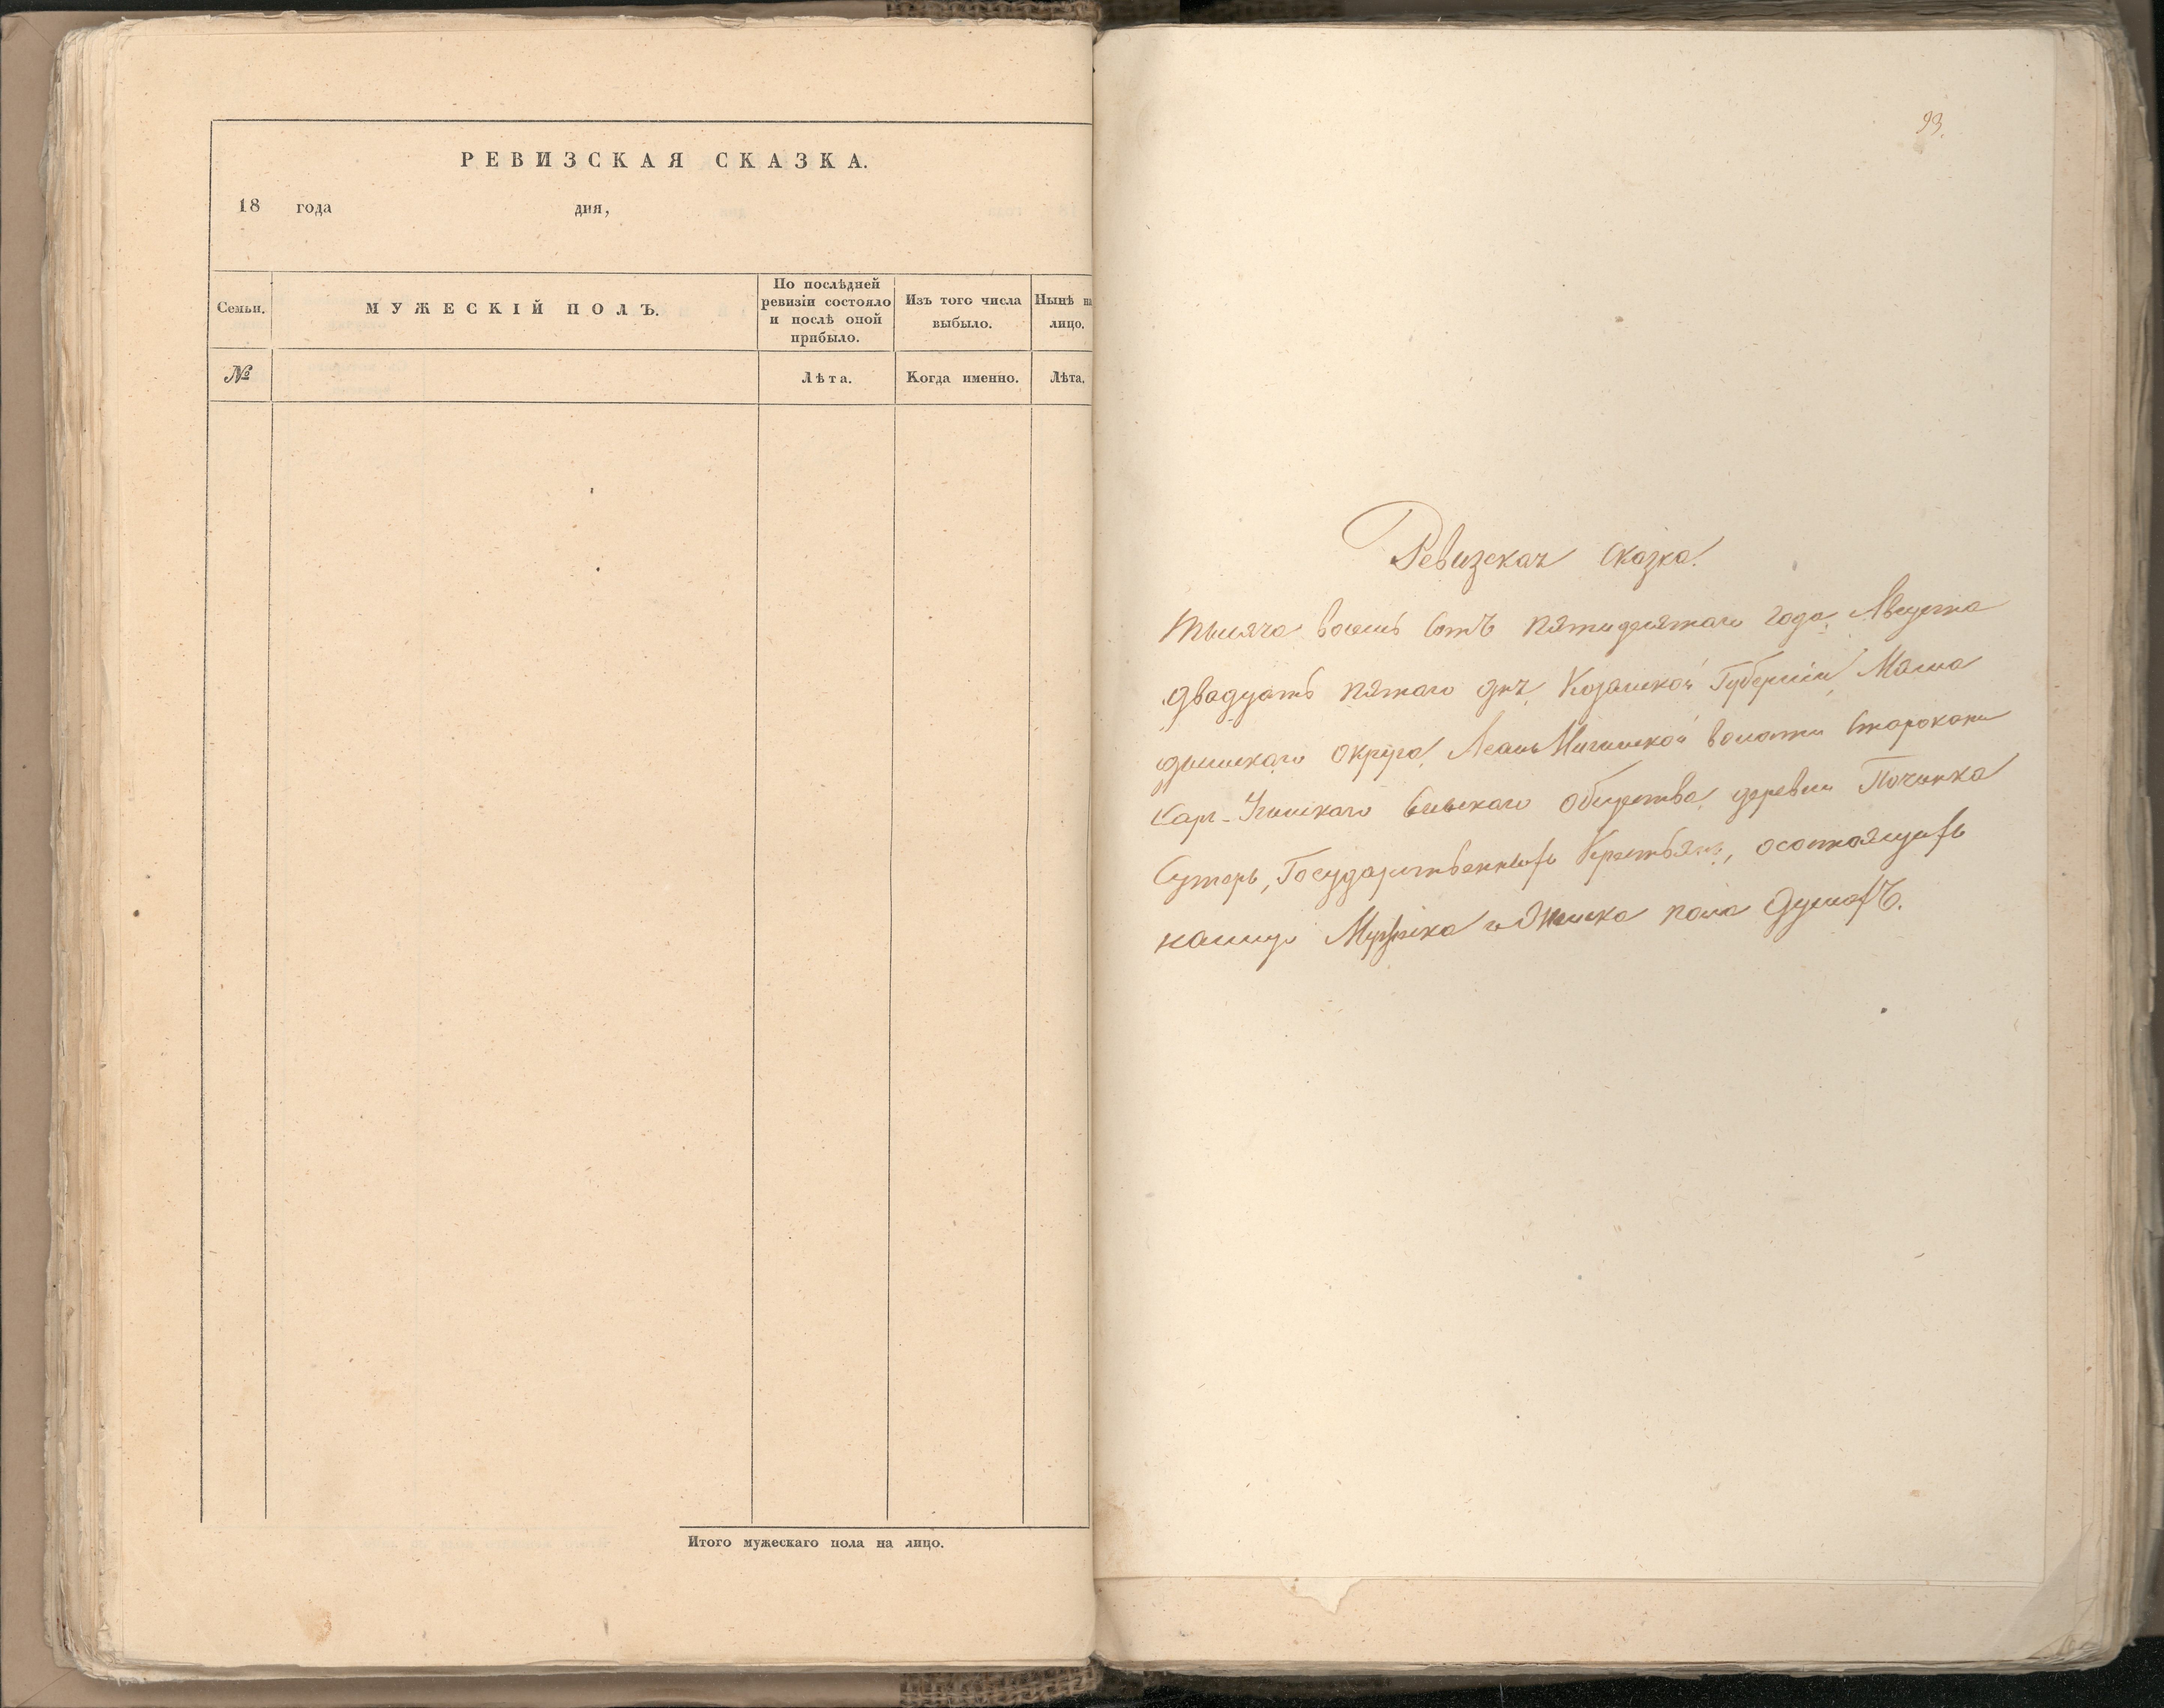 РЕВИЗСКАЯ СКАЗКА.
18 года дня,
Семьи.
МУЖЕСКІЙ ПОЛЪ.
По послѣдней
ревизіи состояло
и послѣ оной
прибыло.
Изъ того числа
выбыло.
Нынѣ на
лицо.
№
Лѣта.
Когда именно.
Лѣта.
Итого мужескаго пола на лицо.
93.
Ревизская сказка.
Тысяча восемь сотъ пятидесятаго года, Августа
двадцать пятаго дня, Казанской Губерніи, Мама
дышскаго округа, волости Старокан
Сельскаго общества, деревни Починка
Сутеръ, Государственныхъ Крестьянъ, осостоящихъ
налицо Мужеска и Женска пола душахъ.